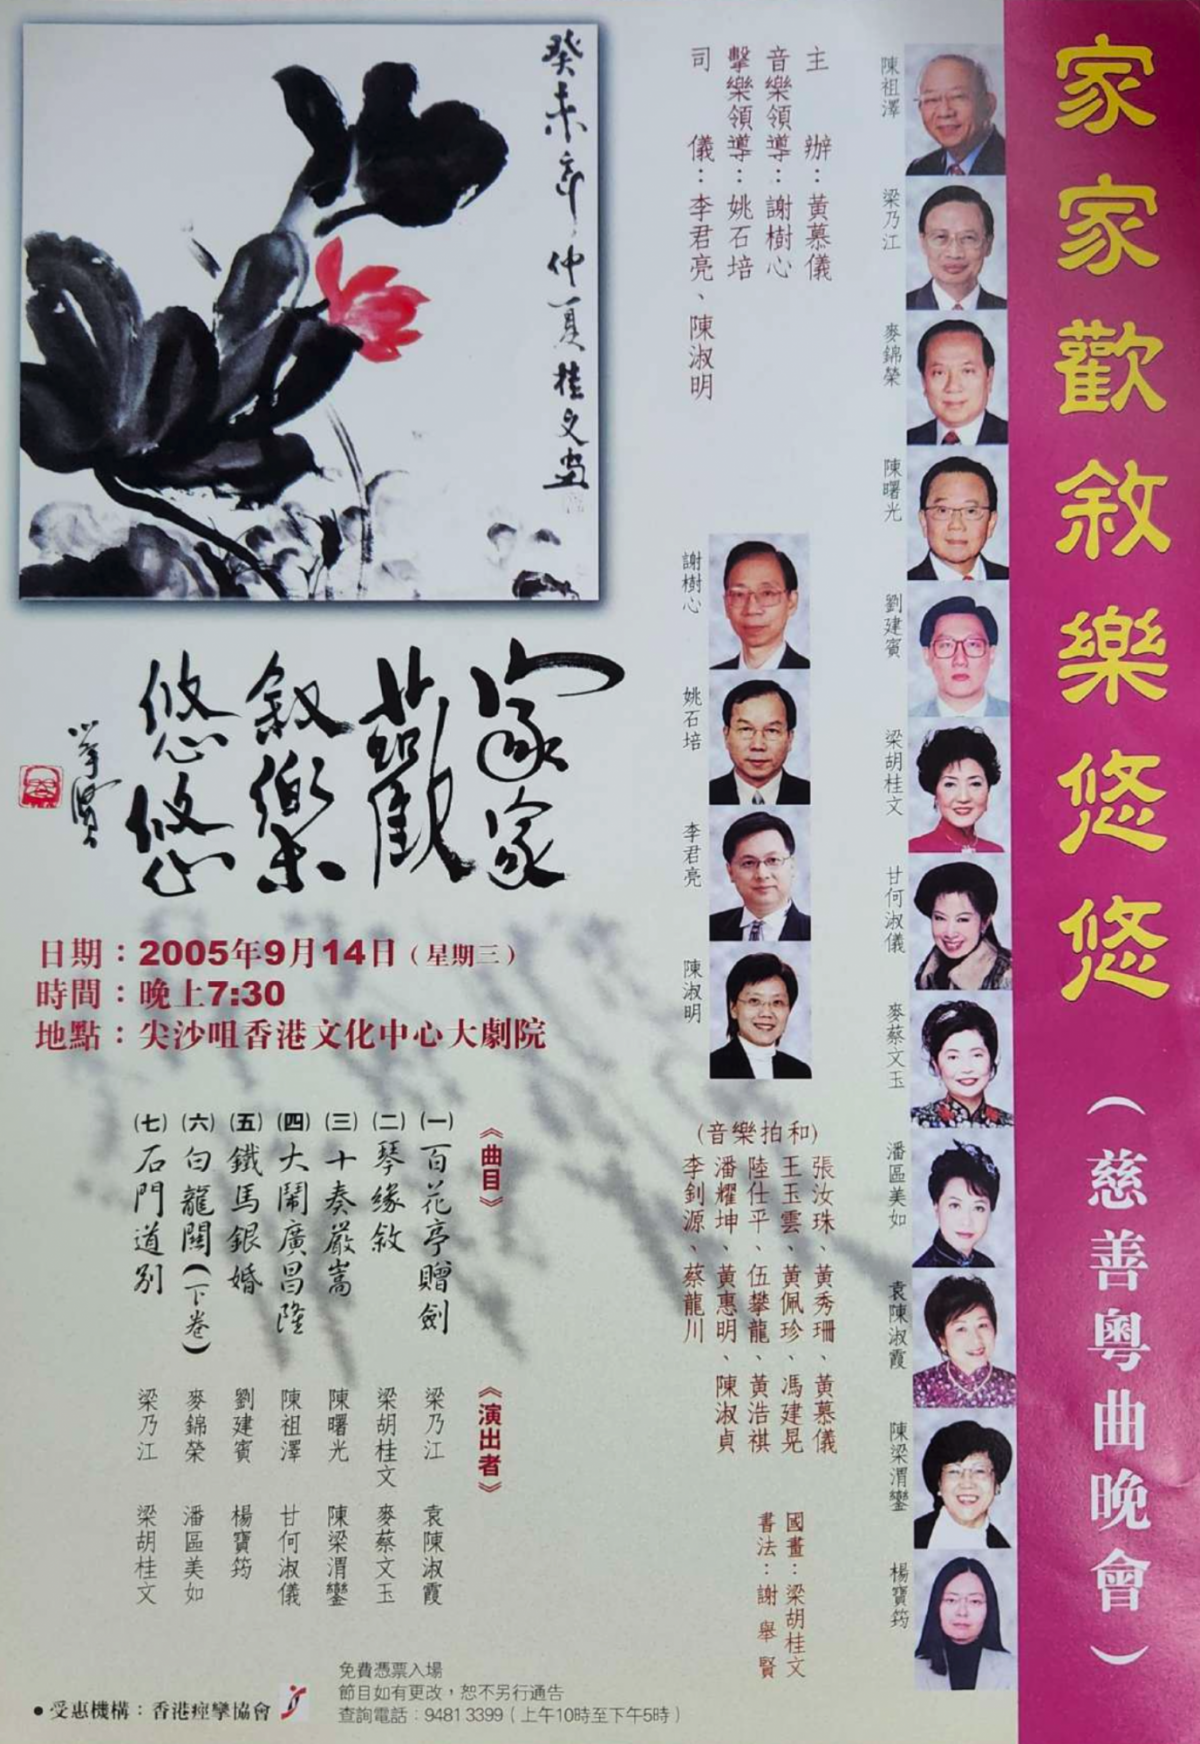 家家歡敘樂悠悠（慈善粵曲晚會）
陳祖澤
梁乃江
麥錦榮
陳曙光
劉建賓
梁胡桂文
甘何淑儀
麥蔡文玉
潘區美如
袁陳淑霞
陳梁渭鑾
楊寶筠
主辦：黃慕儀
音樂領導：謝樹心
擊樂領導：姚石培
司儀：李君亮、陳淑明
謝樹心
姚石培
李君亮
陳淑明
(音樂拍和)
張汝珠、黃秀珊、黃慕儀
王玉雲、黃佩珍、馮建晃
陸仕平、伍攀龍、黃浩祺
潘耀坤、黃惠明、陳淑貞
李釗源、蔡龍川
國畫：梁胡桂文
書法：謝舉賢
癸未年仲夏桂文畫
家家
歡
敘樂
悠悠
舉賢
日期：2005年9月14日（星期三）
時間：晚上7:30
地點：尖沙咀香港文化中心大劇院
《曲目》 《演出者》
(一)百花亭贈劍 梁乃江 袁陳淑霞
(二)琴緣敘 梁胡桂文 麥蔡文玉
(三)十奏嚴嵩 陳曙光 陳梁渭鑾
(四)大鬧廣昌隆 陳祖澤 甘何淑儀
(五)鐵馬銀婚 劉建賓 楊寶筠
(六)白龍關(下卷) 麥錦榮 潘區美如
(七)石門道別 梁乃江 梁胡桂文
●受惠機構：香港痙攣協會
免費憑票入場
節目如有更改，恕不另行通告
查詢電話：9481 3399（上午10時至下午5時）